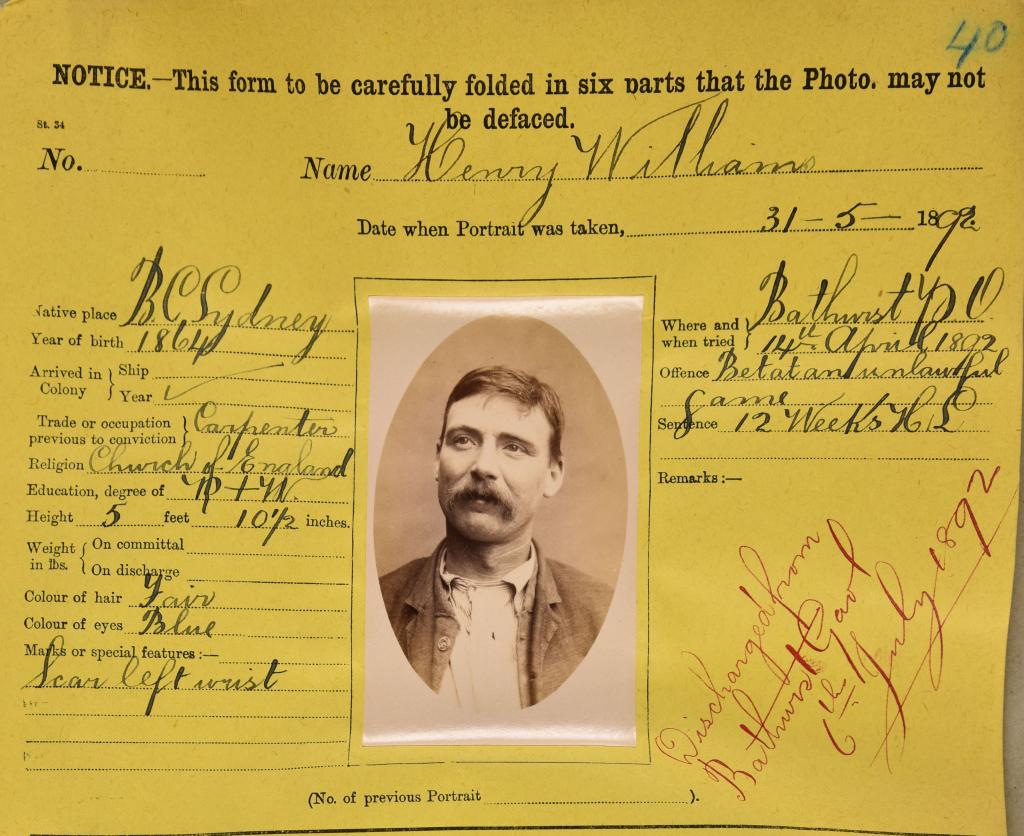 40
NOTICE.—This form to be carefully folded in six parts that the Photo. may not
be defaced.
St. 34
No.
Name Henry Williams
Date when Portrait was taken, 31-5-1892
Native place B.C Sydney
Year of birth 1864
Arrived in Colony } Ship
Year
Trade or occupation previous to conviction } Carpenter
Religion Church of England
Education, degree of R + W.
Height 5 feet 10½ inches.
Weight in lbs. { On committal
On discharge
Colour of hair Fair
Colour of eyes Blue
Marks or special features:—
Scar left wrist
Where and when tried } Bathurst
14th April 1892
Offence Bet at an unlawful
Game
Sentence 12 Weeks H L
Remarks:—
Discharged from
Bathurst Gaol
6th July 1892
(No. of previous Portrait ).